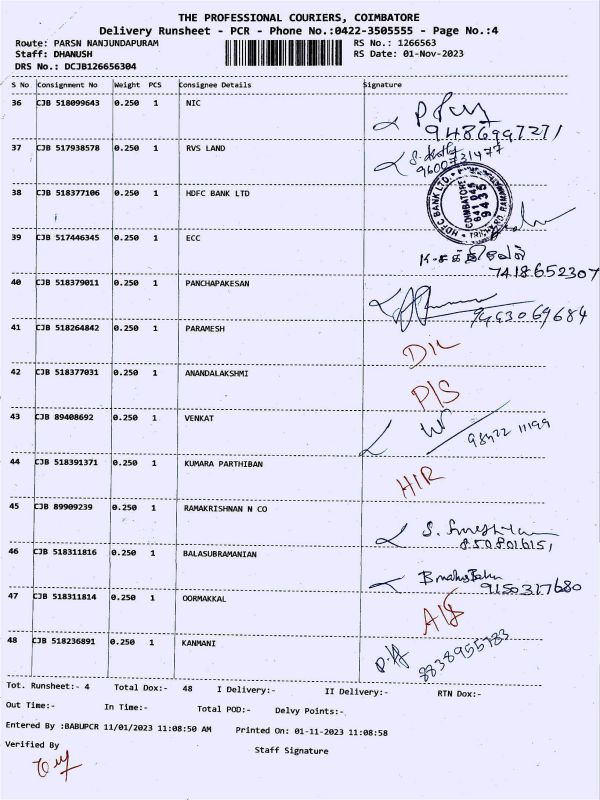 THE PROFESSIONAL COURIERS, COIMBATORE
Delivery Runsheet - PCR - Phone No.:0422-3505555 - Page No.:4
Route: PARSN NANJUNDAPURAM RS No.: 1266563
Staff: DHANUSH RS Date: 01-Nov-2023
DRS No.: DCJB126656304
S No Consignment No Weight PCS Consignee Details Signature
36 CJB 518099643 0.250 1 NIC
9486997271
37 CJB 517938578 0.250 1 RVS LAND
9600731477
38 CJB 518377106 0.250 1 HDFC BANK LTD
HDFC BANK LTD.
COIMBATORE
641 045
9435
39 CJB 517446345 0.250 1 ECC
க.சக்திவேல்
7418652307
40 CJB 518379011 0.250 1 PANCHAPAKESAN
9493069684
41 CJB 518264842 0.250 1 PARAMESH
D/L
42 CJB 518377031 0.250 1 ANANDALAKSHMI
P/S
43 CJB 89408692 0.250 1 VENKAT
98422 11199
44 CJB 518391371 0.250 1 KUMARA PARTHIBAN
H/R
45 CJB 89909239 0.250 1 RAMAKRISHNAN N CO
46 CJB 518311816 0.250 1 BALASUBRAMANIAN
9150317680
47 CJB 518311814 0.250 1 OORMAKKAL
48 CJB 518236891 0.250 1 KANMANI
8838955783
Tot. Runsheet:- 4 Total Dox:- 48 I Delivery:- II Delivery:- RTN Dox:-
Out Time:- In Time:- Total POD:- Delvy Points:-
Entered By :BABUPCR 11/01/2023 11:08:50 AM Printed On: 01-11-2023 11:08:58
Verified By Staff Signature